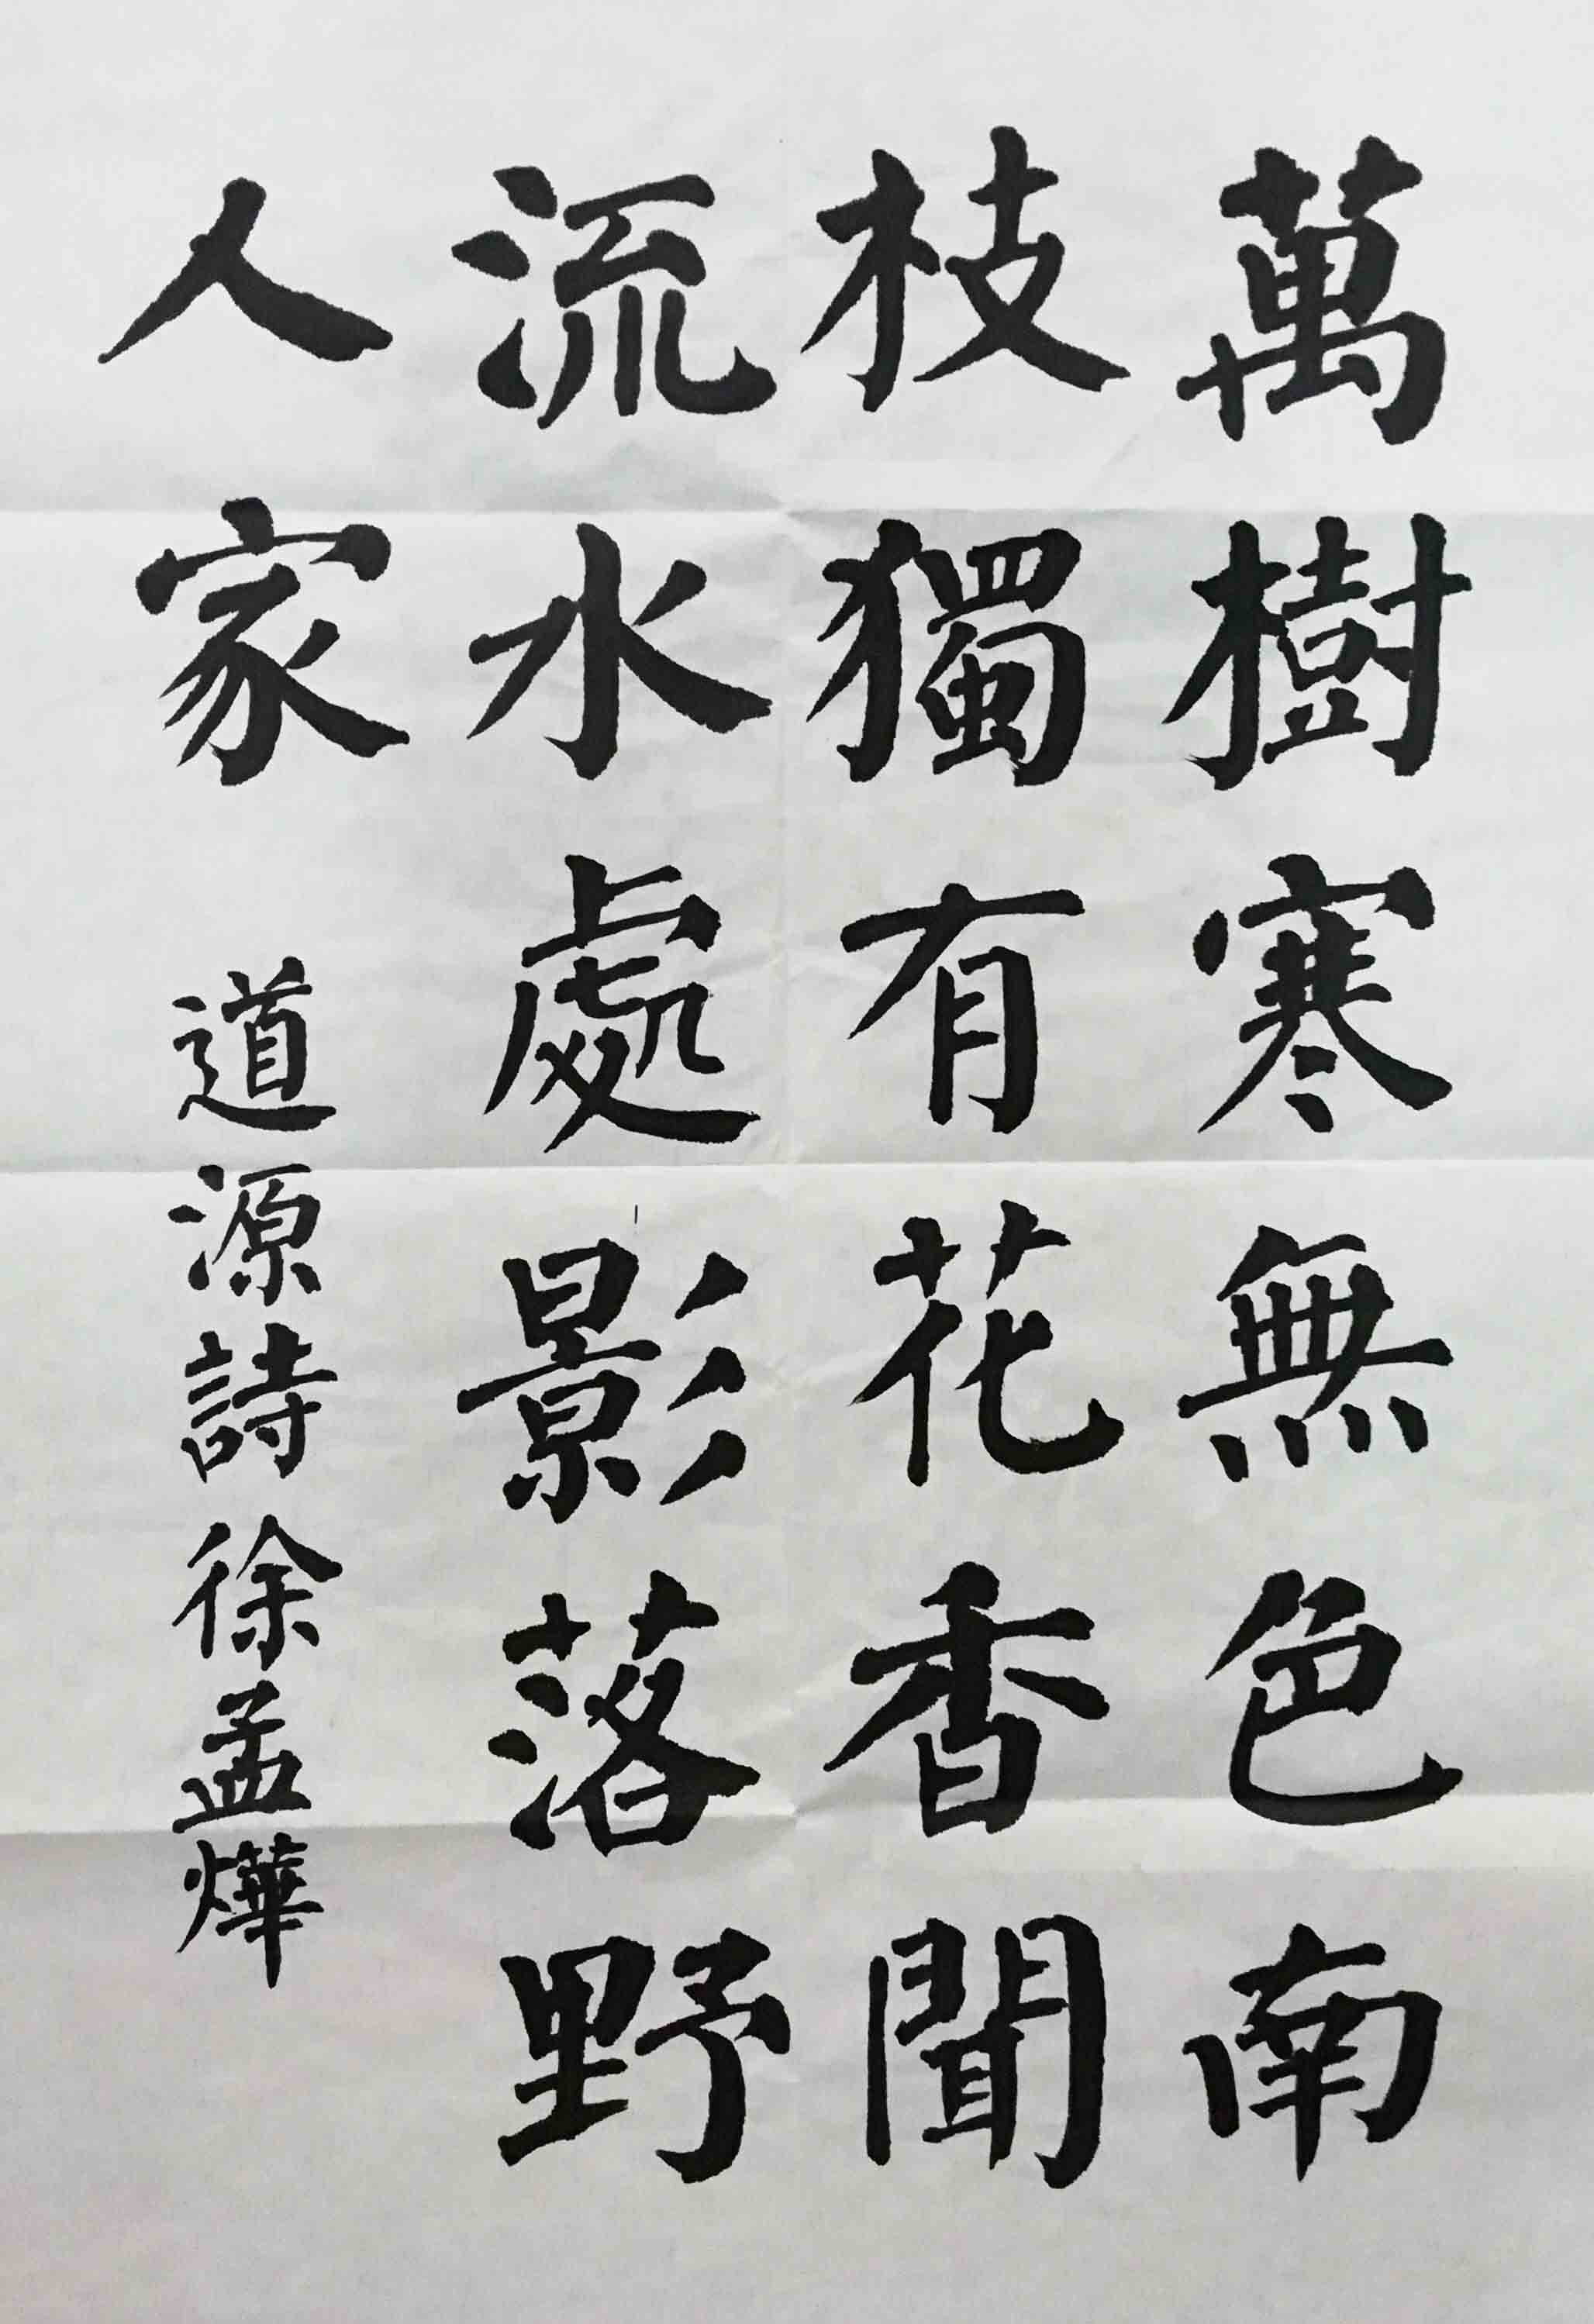 萬樹寒無色南
枝獨有花香聞
流水處影落野
人家
道源詩徐孟燁